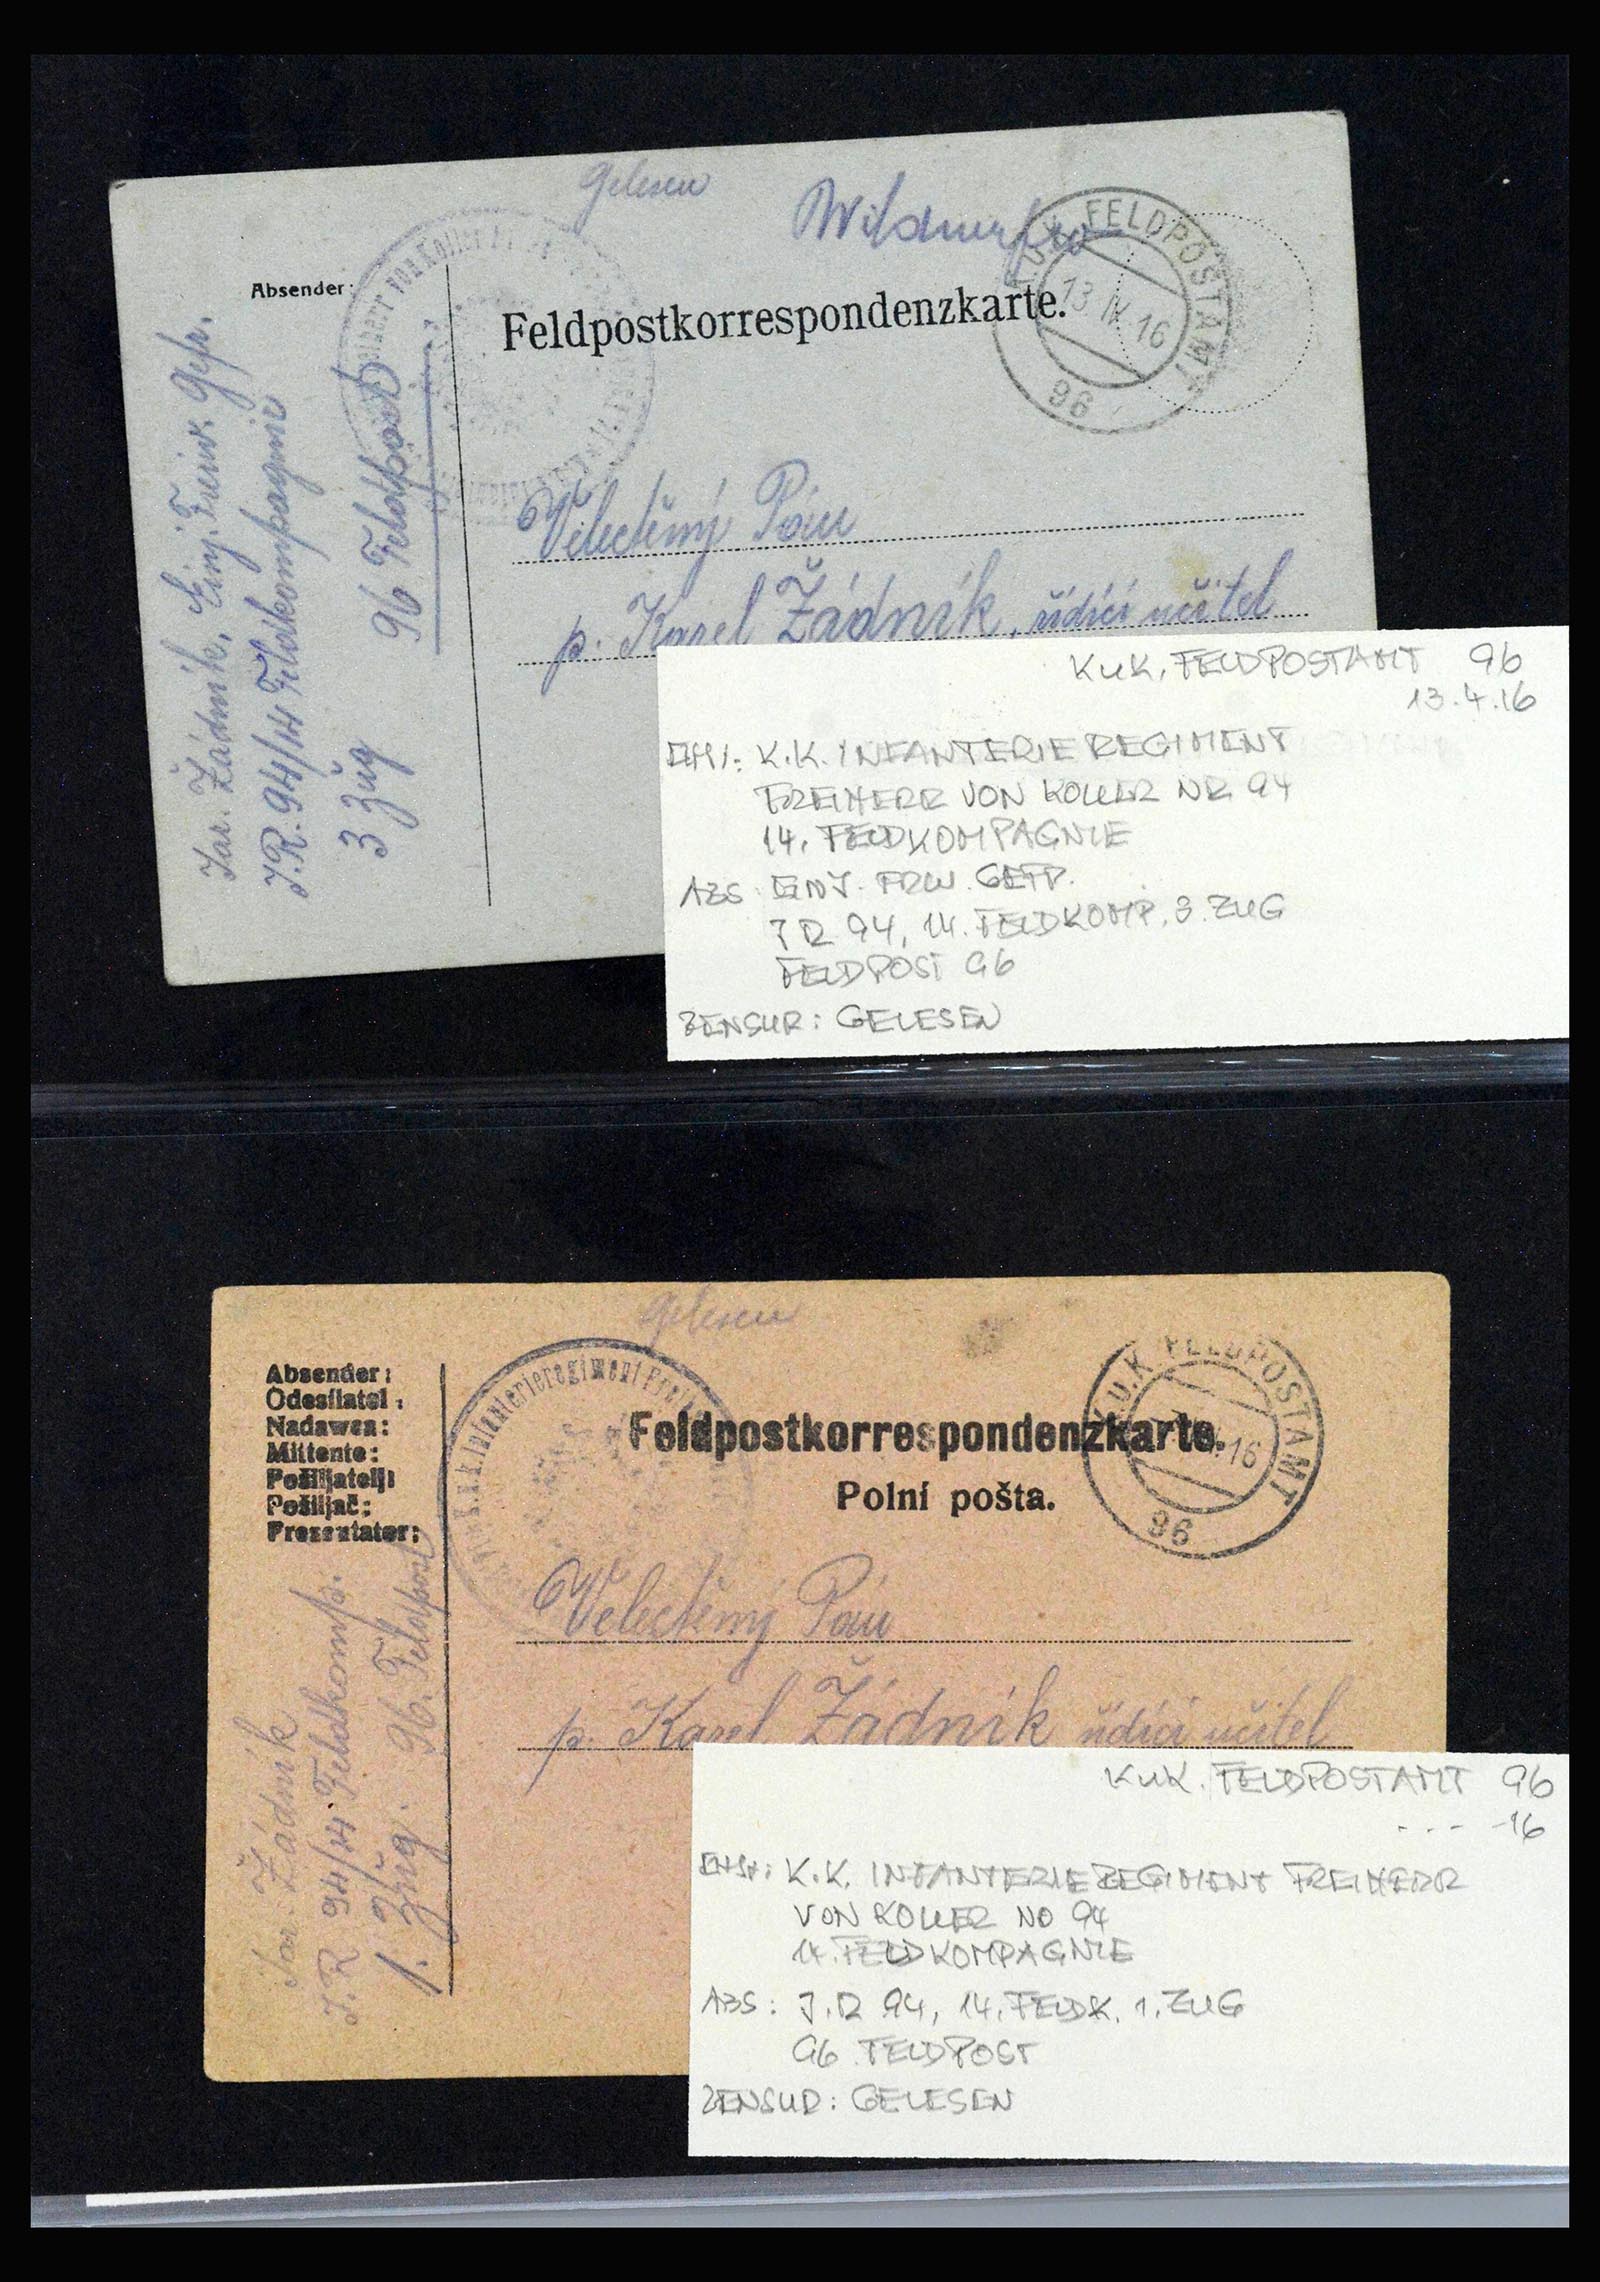 Gelesen
Absender:
Feldpostkorrespondenzkarte.
K.u.K. FELDPOSTAMT
13 IV 16
96
Freiherr von Koller
Jar. Žádník, Einj. Freiw. Gefr.
J.R. 94/14 Feldkompagnie
3 Zug
96 Feldpost
Velectěný Pán
p. Karel Žádník, řídící učitel
KUK. FELDPOSTAMT 96
13.4.16
K.K. INFANTERIEREGIMENT
FREIHERR VON KOLLER NR 94
14. FELDKOMPAGNIE
ABS: EINJ. FRW. GEFR.
JR 94, 14. FELDKOMP. 3. ZUG
FELDPOST 96
ZENSUR: GELESEN
Gelesen
Absender:
Odesílatel:
Nadawca:
Mittente:
Pošiljatelj:
Pošiljač:
Prezentator:
Feldpostkorrespondenzkarte.
Polní pošta.
K.U.K. FELDPOSTAMT
16
96
k.k. Infanterieregiment Frei
Jar. Žádník
J.R 94/14 Feldkomp.
1. Zug. 96. Feldpost
Velectěný Pán
p. Karel Žádník řídící učitel
KUK. FELDPOSTAMT 96
- - - -16
K.K. INFANTERIEREGIMENT FREIHERR
VON KOLLER NO 94
14. FELDKOMPAGNIE
ABS: J.R 94, 14. FELDK. 1. ZUG
96 FELDPOST
ZENSUR: GELESEN